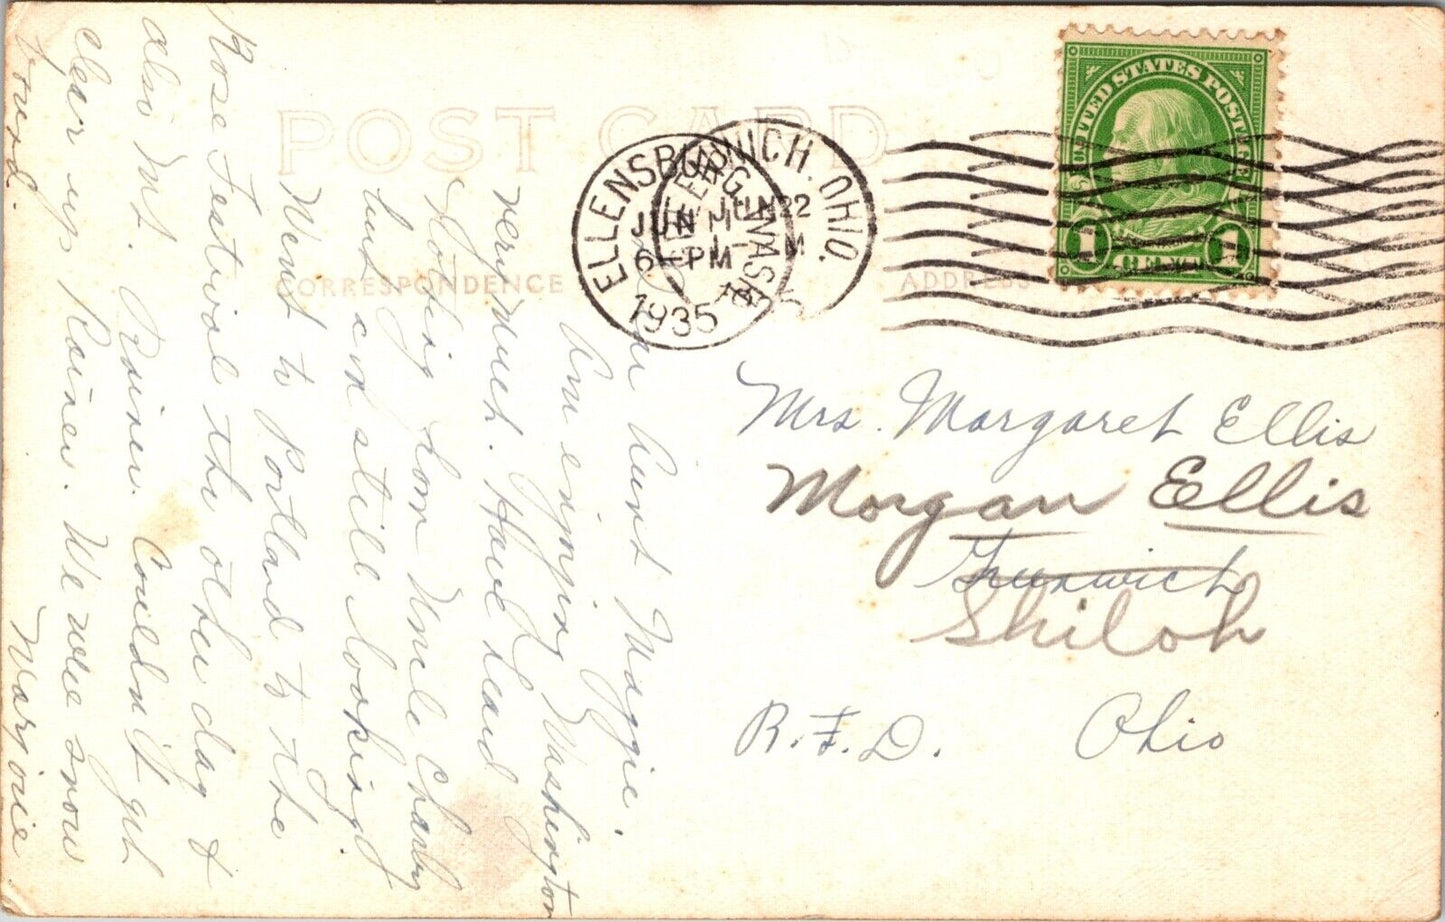 POST CARD
CORRESPONDENCE
ADDRESS
UNITED STATES POSTAGE
1 CENT 1
ELLENSBURG, WASH.
JUN 11
6-PM
1935
GREENWICH. OHIO.
JUN 22
M
Dear Aunt Maggie.
Am enjoying Washington
very much. Have heard
Nothing from Uncle Charley
but am still looking
Went to Portland to the
Rose Festival the other day &
also Mt. Rainier. Couldn't get
clear up Rainer. We were snow
bound.
Marjorie
Mrs. Margaret Ellis
Morgan Ellis
Greenwich
Shiloh
R.F.D. Ohio